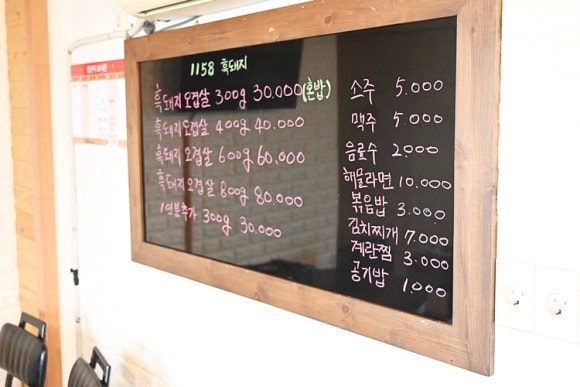 1158 흑돼지
흑돼지 오겹살 300g 30.000(혼밥)
흑돼지 오겹살 400g 40.000
흑돼지 오겹살 600g 60.000
흑돼지 오겹살 800g 80.000
1인분추가 300g 30.000
소주 5.000
맥주 5.000
음료수 2.000
해물라면 10.000
볶음밥 3.000
김치찌개 7.000
계란찜 3.000
공기밥 1.000